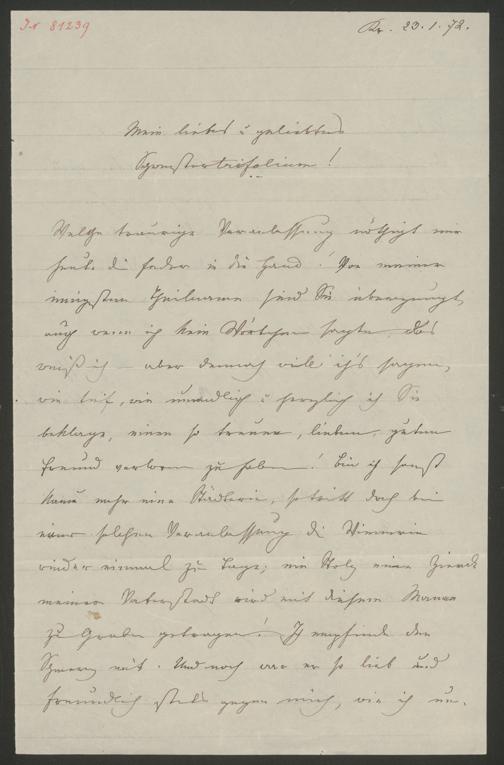 I.N 81239
Kr. 23.1.72.
Mein liebes u geliebtes
Schwestertrifolium!
Welche traurige Veranlassung nöthigt mir
heute die Feder in die Hand! Von meiner
innigsten Theilname sind Sie überzeugt,
auch wenn ich kein Wörtchen sagte, das
weiß ich – aber dennoch will ich's sagen,
wie tief, wie unendlich u herzlich ich Sie
beklage, einen so treuen, lieben, guten
Freund verloren zu haben! Bin ich sonst
kaum mehr eine Städterin, so tritt doch bei
einer solchen Veranlassung die Wienerin
wieder einmal zu Tage; ein Stolz eine Zierde
meiner Vaterstadt wird mit diesem Manne
zu Grabe getragen! Ich empfinde den
Schmerz mit. Und noch war er so lieb und
freundlich stets gegen mich, wie ich un-